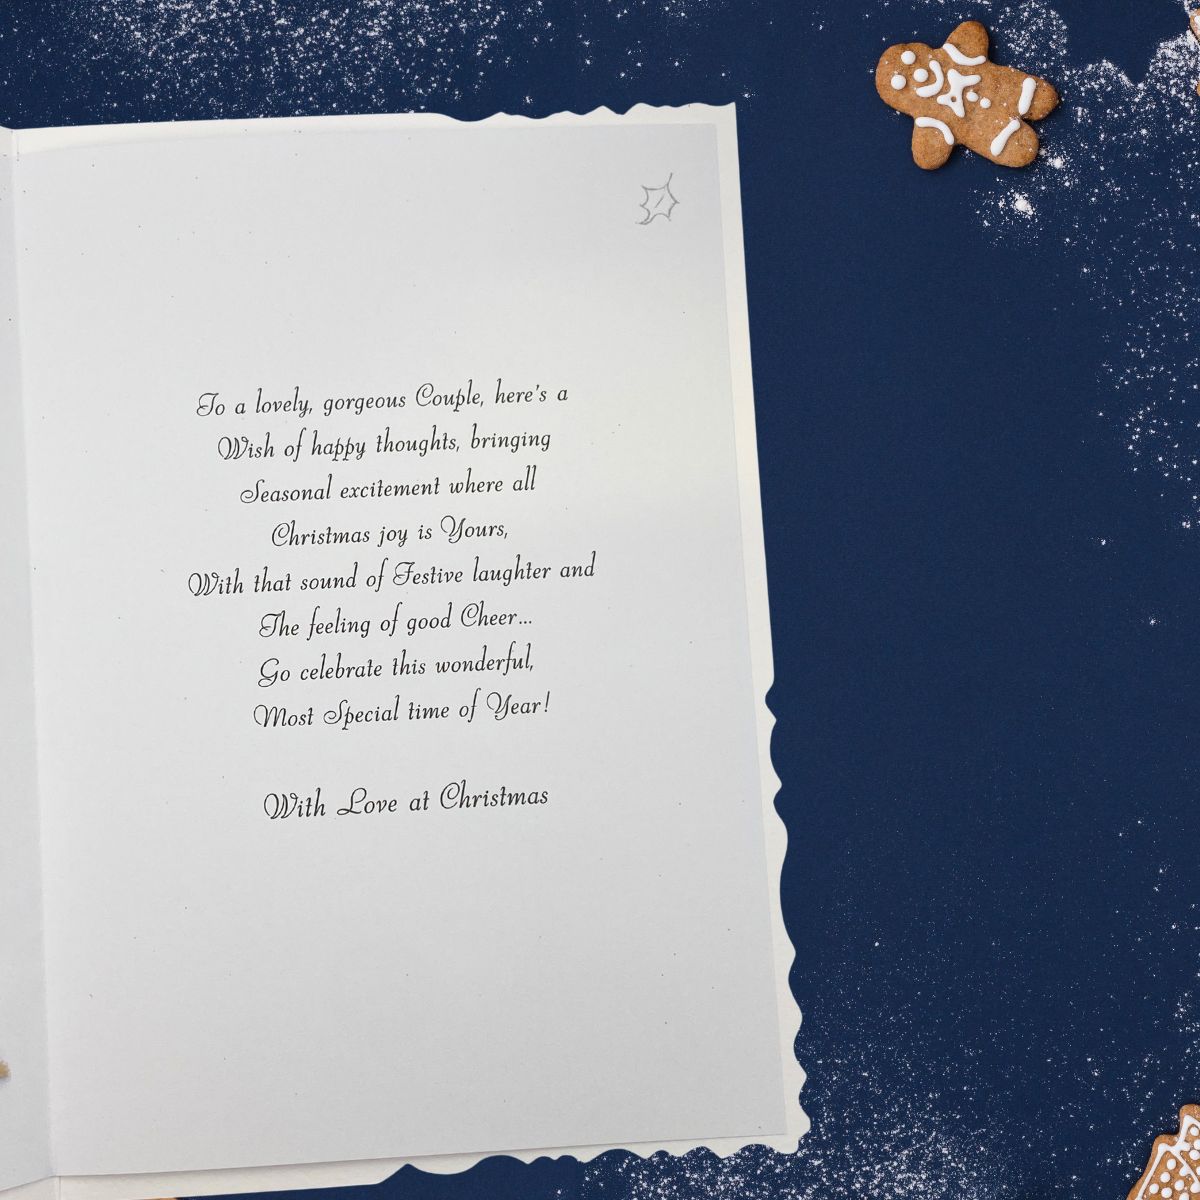 To a lovely, gorgeous Couple, here's a
Wish of happy thoughts, bringing
Seasonal excitement where all
Christmas joy is Yours,
With that sound of Festive laughter and
The feeling of good Cheer...
Go celebrate this wonderful,
Most Special time of Year!
With Love at Christmas